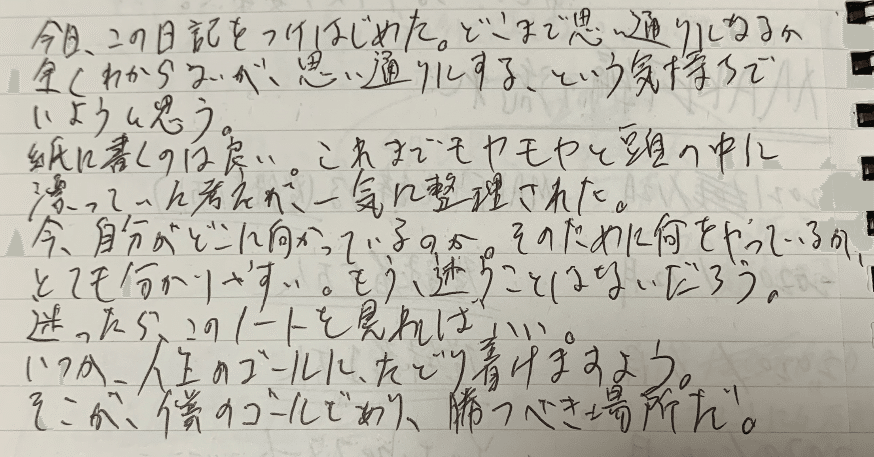 今日、この日記をつけはじめた。どこまで思い通りになるか
全くわからないが、思い通りにする、という気持ちで
いようと思う。
紙に書くのは良い。これまでモヤモヤと頭の中に
漂っていた考えが、一気に整理された。
今、自分がどこに向かっているのか。そのために何をやっているか、
とても分かりやすい。もう、迷うことはないだろう。
迷ったら、このノートを見ればいい。
いつか、人生のゴールに、たどり着けますよう。
そこが、僕のゴールであり、勝つべき場所だ。